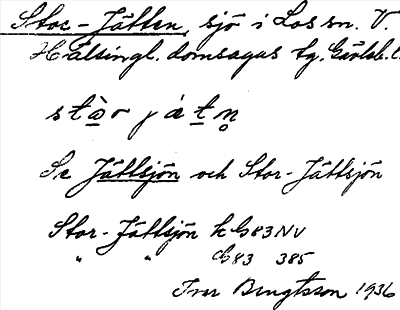 Stor-Jätten, sjö i Los sn. V.
Hälsingl. domsagas tg. Gävleb. l.
stòr játn̥
Se Jättsjön och Stor-Jättsjön
Stor-Jättsjön k G83NV
" " G83 385
Ivar Bengtsson 1936